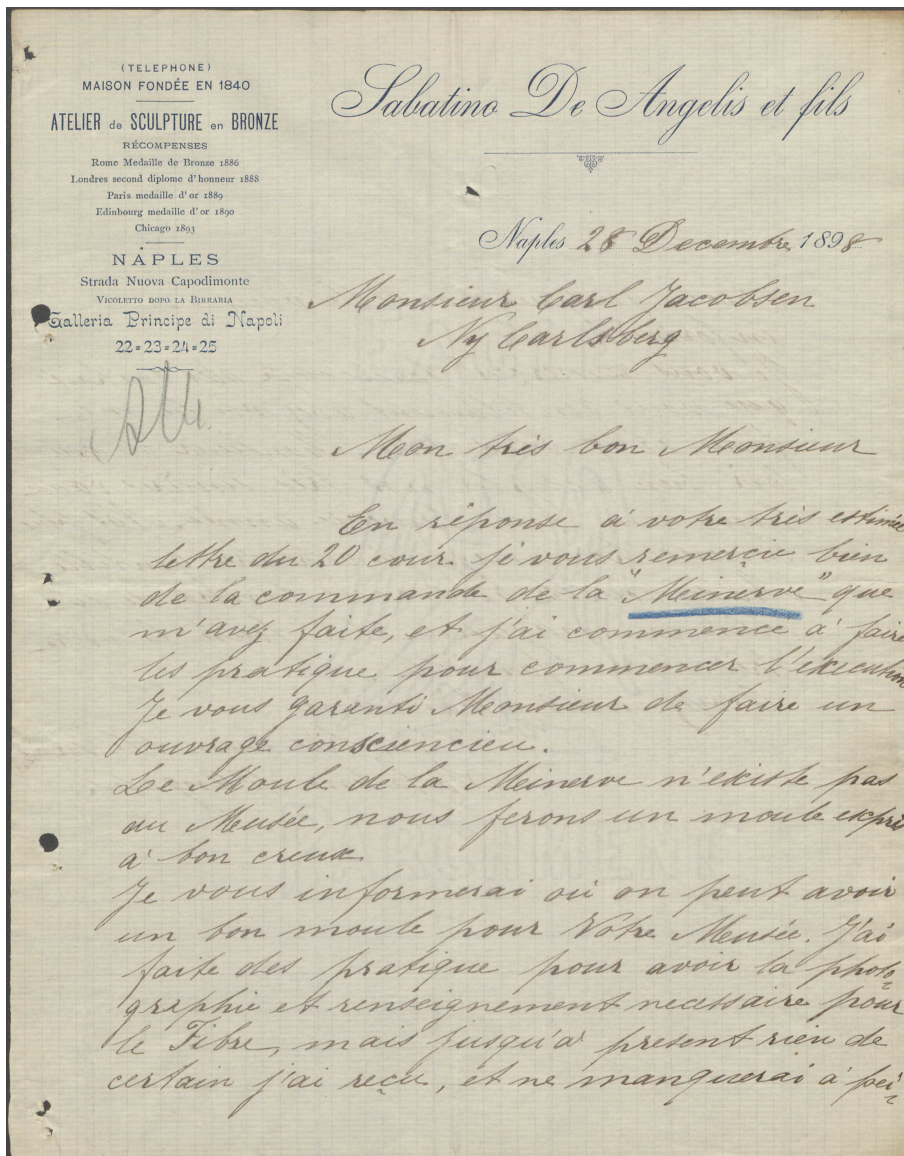 (TELEPHONE)
MAISON FONDÉE EN 1840
ATELIER de SCULPTURE en BRONZE
RÉCOMPENSES
Rome Medaille de Bronze 1886
Londres second diplome d'honneur 1888
Paris medaille d'or 1889
Edinbourg medaille d'or 1890
Chicago 1893
NAPLES
Strada Nuova Capodimonte
VICOLETTO DOPO LA BIRRARIA
Galleria Principe di Napoli
22=23=24=25
Sabatino De Angelis et fils
Naples 28 Decembre 1898
Monsieur Carl Jacobsen
Ny Carlsberg
Mon très bon Monsieur
En réponse à votre très estimée
lettre du 20 cour. je vous remercie bien
de la commande de la "Meinerve" que
m'avez faite, et j'ai commencé à faire
les pratique pour commencer l'execution
Je vous garanti Monsieur de faire un
ouvrage consciencieu.
Le Moule de la Meinerve n'existe pas
au Meusée, nous ferons un moule exprès
à bon creux
Je vous informerai où on peut avoir
un bon moule pour Votre Meusée. J'ai
faite des pratique pour avoir la photo=
graphie et renseignement necessaire pour
le Tibre, mais jusqu'à present rien de
certain j'ai reçu, et ne manquerai à pei=